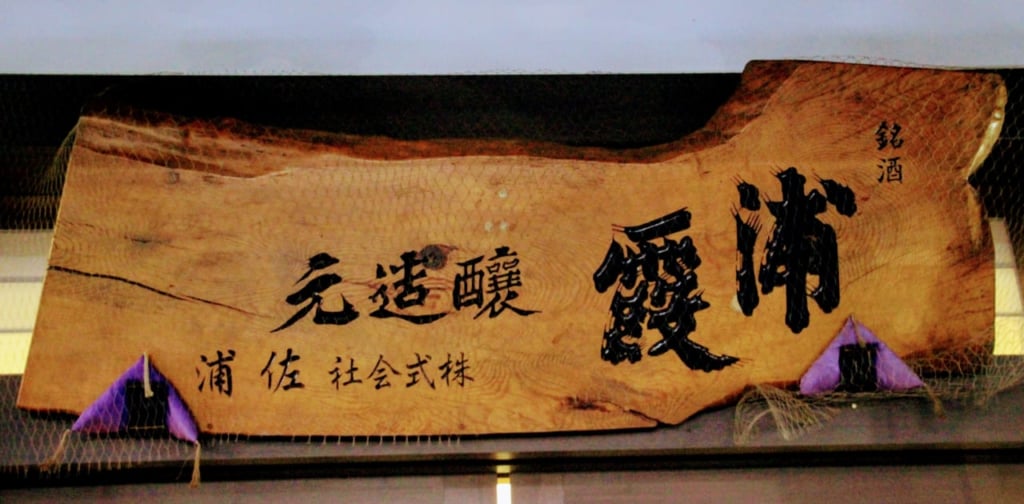 銘酒
浦霞
醸造元
株式会社佐浦